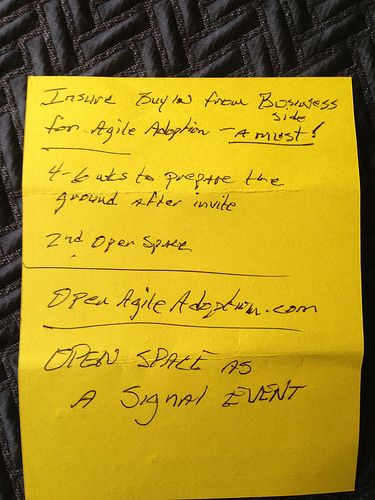 Insure Buyin from Business
side
for Agile Adoption - a must!
4-6 wks to prepare the
ground after invite
2nd Open Space
Open Agile Adoption.com
OPEN SPACE AS
A Signal EVENT